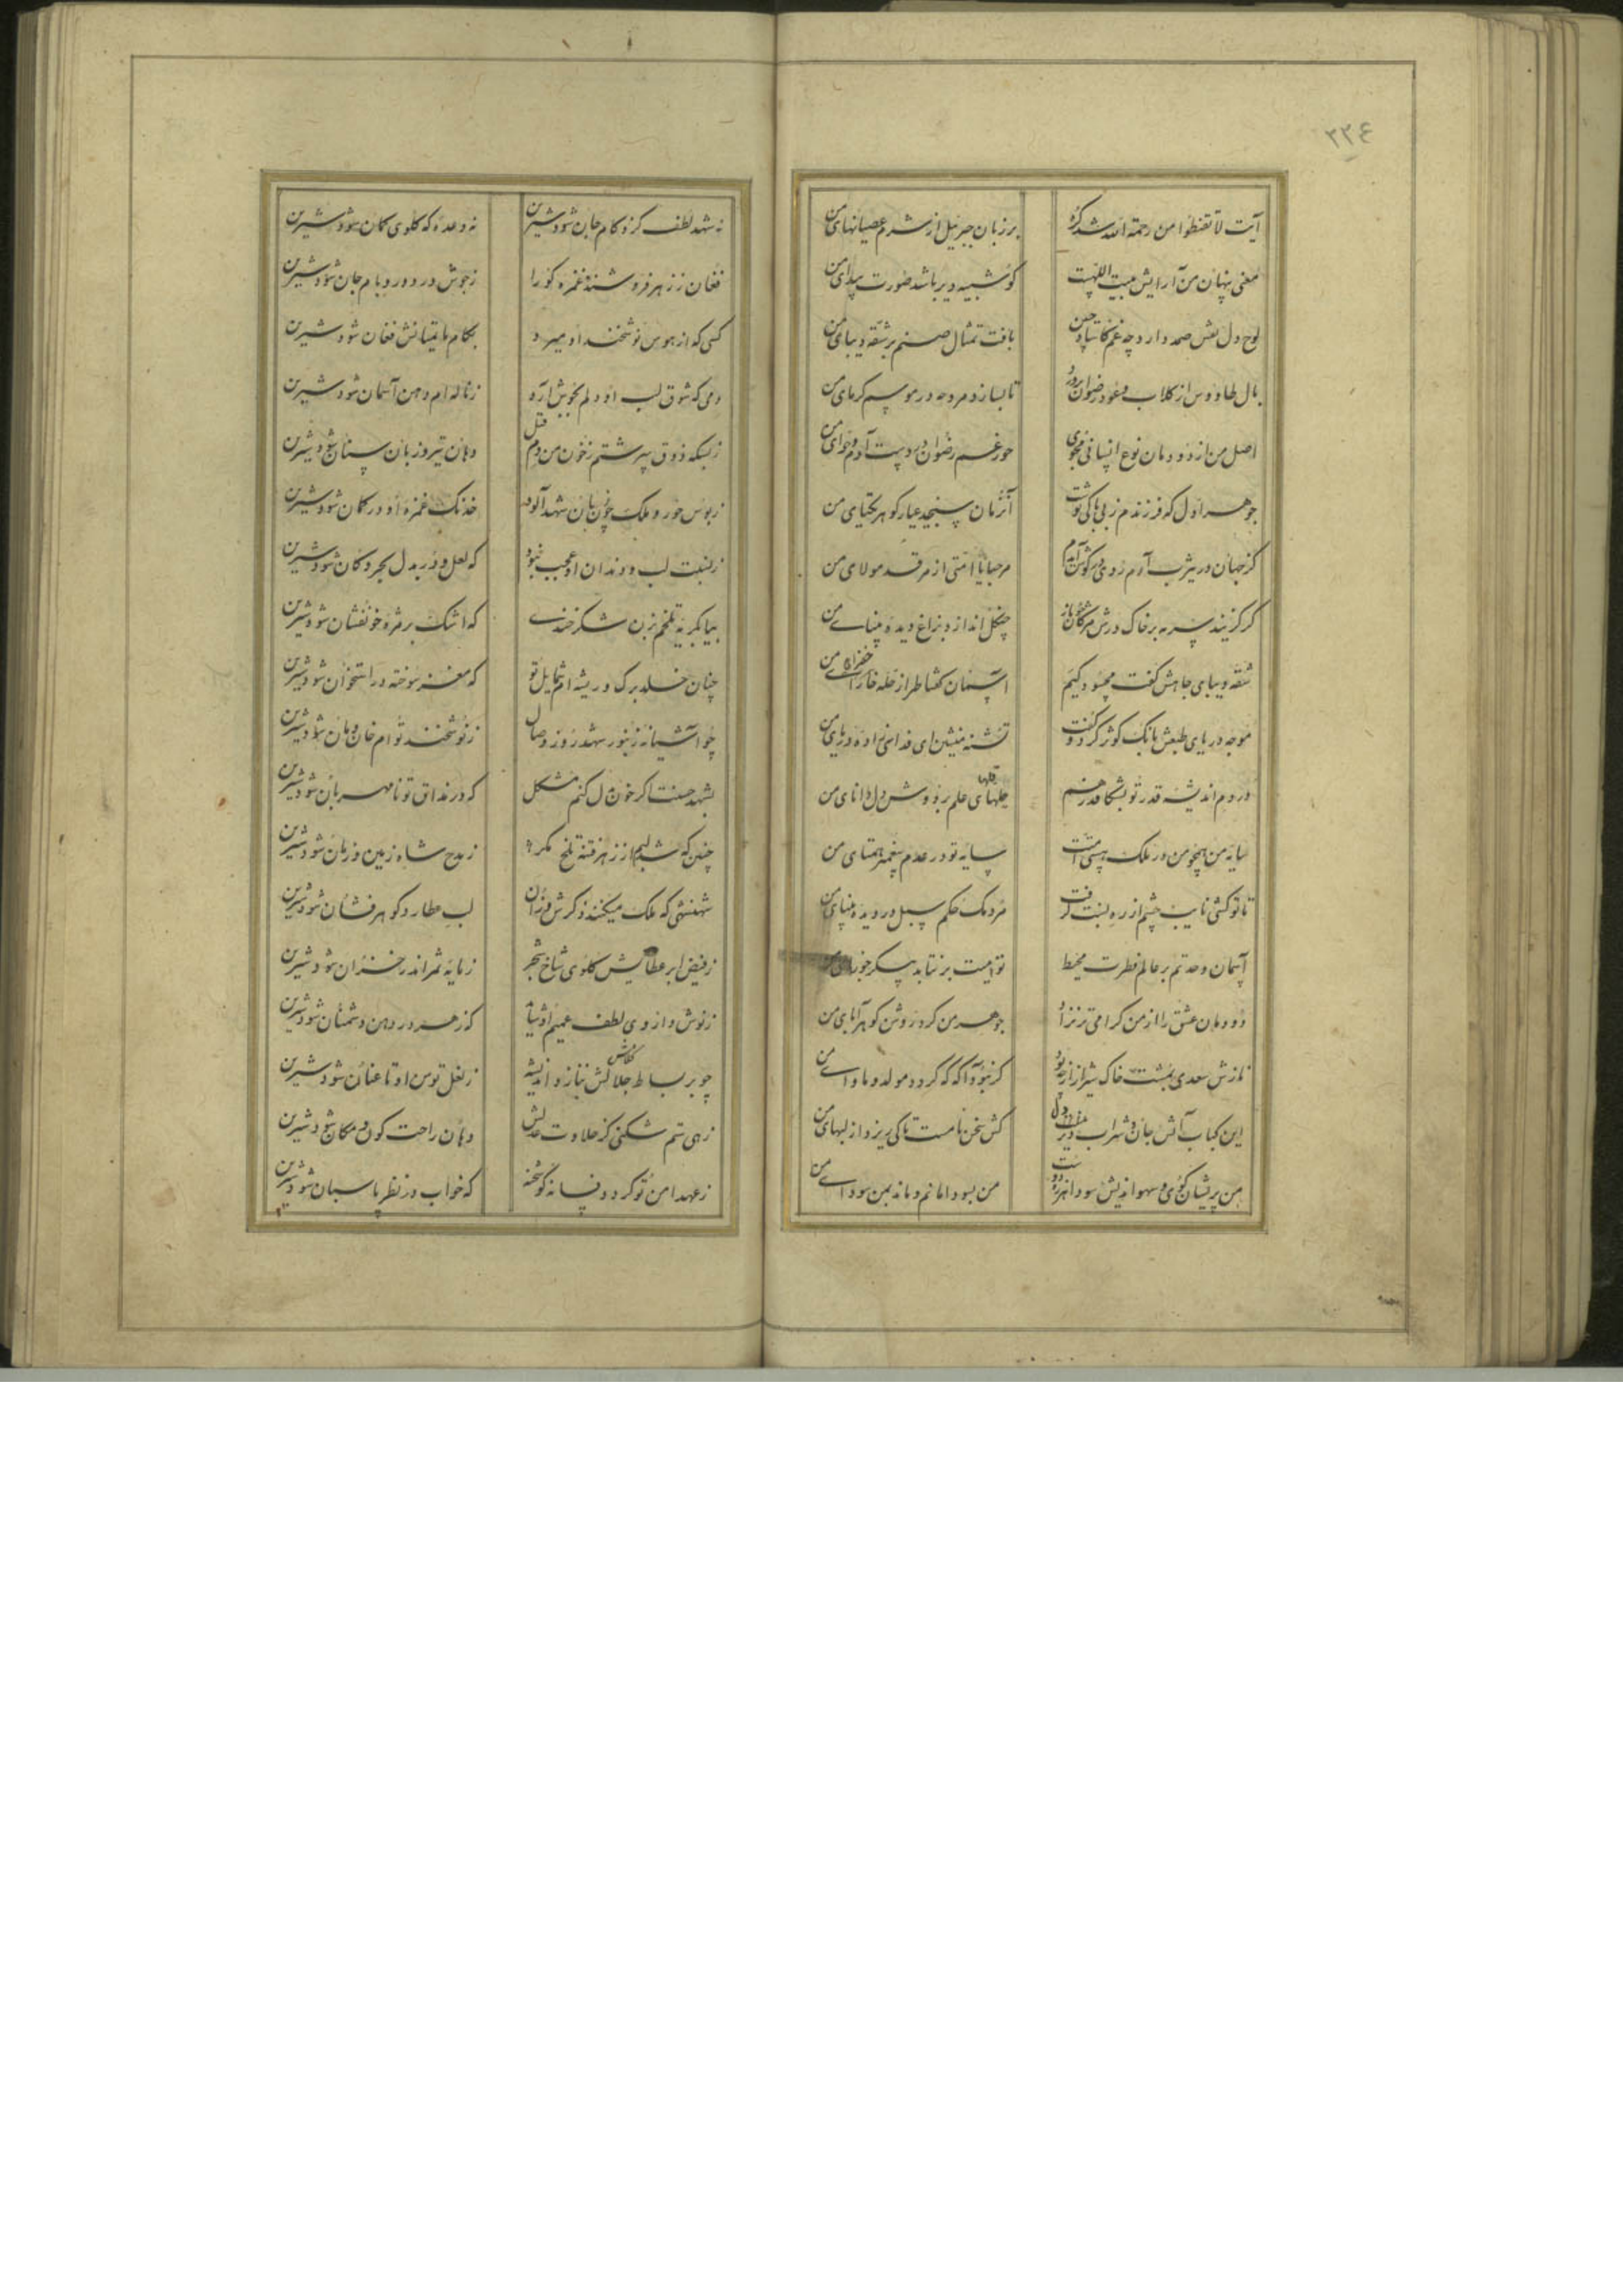 ٢٢٤
آیت لا تقنطوا من رحمة الله شد گره
بر زبان جبرئیل از شرم عصیانهای من
معنی پنهان من آرایش بیت اللهست
گو شبیه دیر باشد صورت پیدای من
لوح دل نقش صمد دارد چه غم کاستاد چین
بافت تمثال صنم بر شقه دیبای من
بال طاووس از کلاب رضوان
تا بسازد مروحه در موسم گرمای من
اصل من از دودمان نوع انسانی مجوی
حور غم رضوان آدم و حوای من
جوهر اول که فرزندم ز بی باکی نوشت
آن زمان سنجید عیار گوهر یکتای من
گر جهان در یثرب آرم روی در گوش آیدم
مرحبا یا امتی از مرقد مولای من
گر گزیند سرمه بر خاک درش مژگان باز
چنگل اندازد بزاغ دیده بینای من
شقه دیبای جاهش گفت محسود کیم
آسمان گفتا طراز حله خارای من
خضرای
موجه دریای طبعش بانگ کوثر کرد و گفت
تشنه منشین ای فدای زاده دریای من
در دم اندیشه قدر تو بشکافد ز هم
حلهای علم بر دوش دل دانای من
سایه من همچو من در ملک هستی
سایه تو در عدم پیغمبر همتای من
تا تو کشتی نایب چشم از ره بنت گرفت
مردمک حکم سبل در دیده بینای من
آسمان وحدتم بر عالم فطرت محیط
توامیت بر نتابد پیکر جوزای من
دودمان عشق را از من گرامی تر نزاد
جوهر من کرد روشن گوهر آبای من
نازش سعدی بمشت خاک شیراز از چه بود
گر نبود آگه که گردد مولد و ماوای من
این کباب آتش جان و شراب
کش سخن نامست تا کی ریزد از لبهای من
من پریشان گوی و سهو اندیش سودا
من بسودا مانم و ماند بمن سودای من
نه شهد لطف کزو کام جان شود شیرین
نه وعده که گلوی گمان شود شیرین
فغان ز زهر فروشنده غمزه کورا
ز جوش درد در و بام جان شود شیرین
کسی که از هوس نوشخند او میرد
بکام ماتمیانش فغان شود شیرین
دمی که شوق لب او دلم بجوش آرد
ز ناله ام دهن آسمان شود شیرین
ز بسکه ذوق سرشتم ز خون من دم قتل
دهان تیر و زبان سنان شود شیرین
ز بوس حور و ملک چون بان شهد آلود
خدنگ غمزه او در کمان شود شیرین
ز نسبت لب و دندان او عجب نبود
که لعل و در بدل بحر و کان شود شیرین
بیا بگریه تلخم بزن شکرخندی
که اشک بر مژه خونفشان شود شیرین
چنان خلد برگ و ریشه ام شمایل تو
که مغز سوخته در استخوان شود شیرین
چو آشیانه زنبور شهد روز وصال
ز نوشخند توام خان و مان شود شیرین
بشهد حسنت اگر خون دل کنم مشکل
که در مذاق تو نامهربان شود شیرین
چنین که شد لبم از زهر فتنه تلخ مگر
ز مدح شاه زمین و زمان شود شیرین
شهنشهی که ملک میکند ذکرش وز آن
لب عطارد گوهرفشان شود شیرین
ز فیض ابر عطایش گلوی شاخ شجر
ز مایه ثمر اندر خزان شود شیرین
ز نوش داروی لطف عمیم او شاید
که زهر در دهن دشمنان شود شیرین
چو بر بساط جلالش بتازد اندیشه
ز نعل توسن او تا عنان شود شیرین
زهی ستم شکنی کز حلاوت عدلش
دهان راحت کون و مکان شود شیرین
ز عهد امن تو گر دد فسانه گو شحنه
که خواب در نظر پاسبان شود شیرین